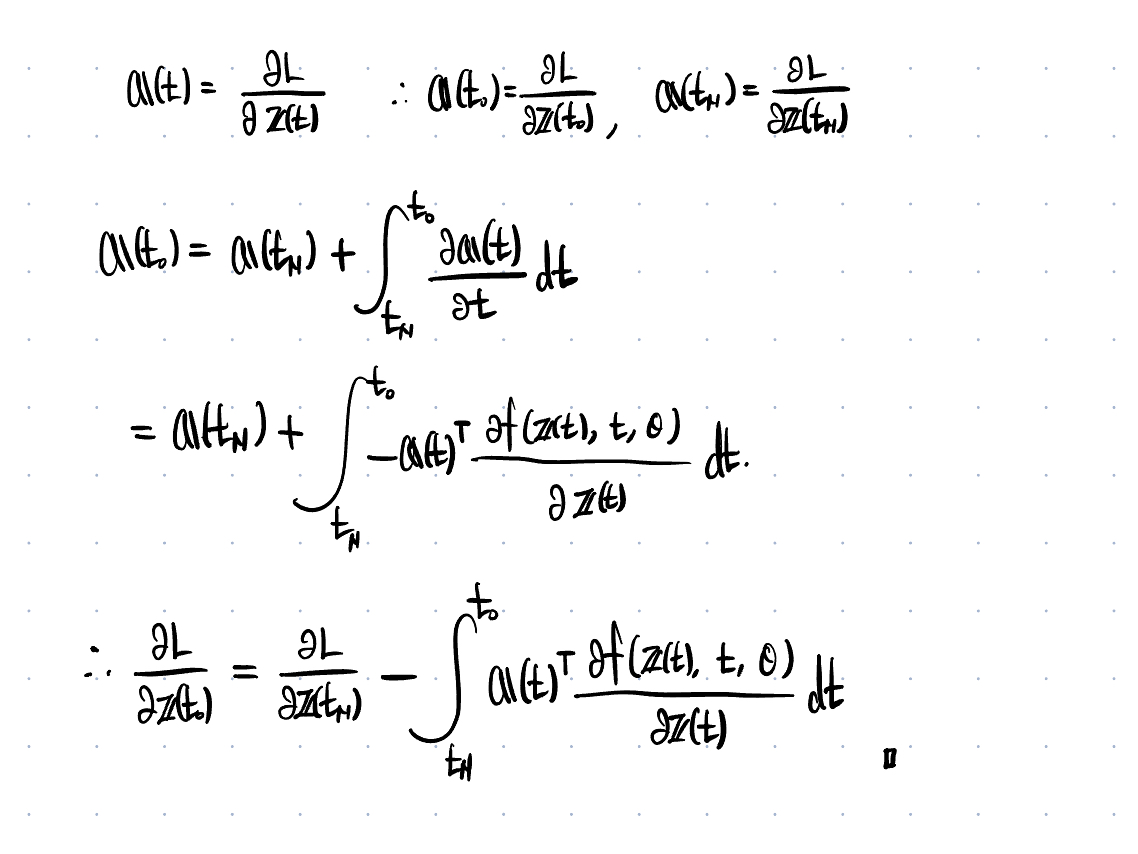 𝕒(t) = ∂L/∂𝕫(t) ∴ 𝕒(t₀) = ∂L/∂𝕫(t₀) , 𝕒(t_N) = ∂L/∂𝕫(t_N)
𝕒(t₀) = 𝕒(t_N) + ∫_{t_N}^{t₀} ∂𝕒(t)/∂t dt
= 𝕒(t_N) + ∫_{t_N}^{t₀} −𝕒(t)ᵀ ∂f(𝕫(t), t, θ)/∂𝕫(t) dt.
∴ ∂L/∂𝕫(t₀) = ∂L/∂𝕫(t_N) − ∫_{t_N}^{t₀} 𝕒(t)ᵀ ∂f(𝕫(t), t, θ)/∂𝕫(t) dt ∎